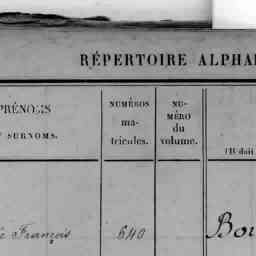 RÉPERTOIRE ALPHA
PRÉNOMS
SURNOMS.
NUMÉROS
ma-
tricules.
NU-
MÉRO
du
volume.
(Il doit
François
640
Bou